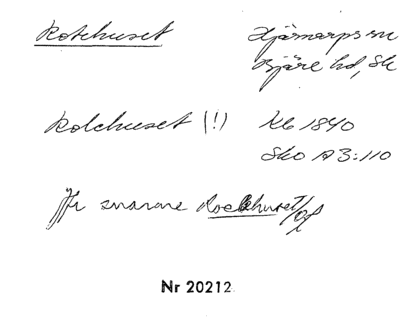 Kotchuset Hjärnarps sn
Bjäre hd, Sk
Kolchuset (!) Kb 1840
Sko A3:110
Jfr snarare Rockhuset/
Nr 20212